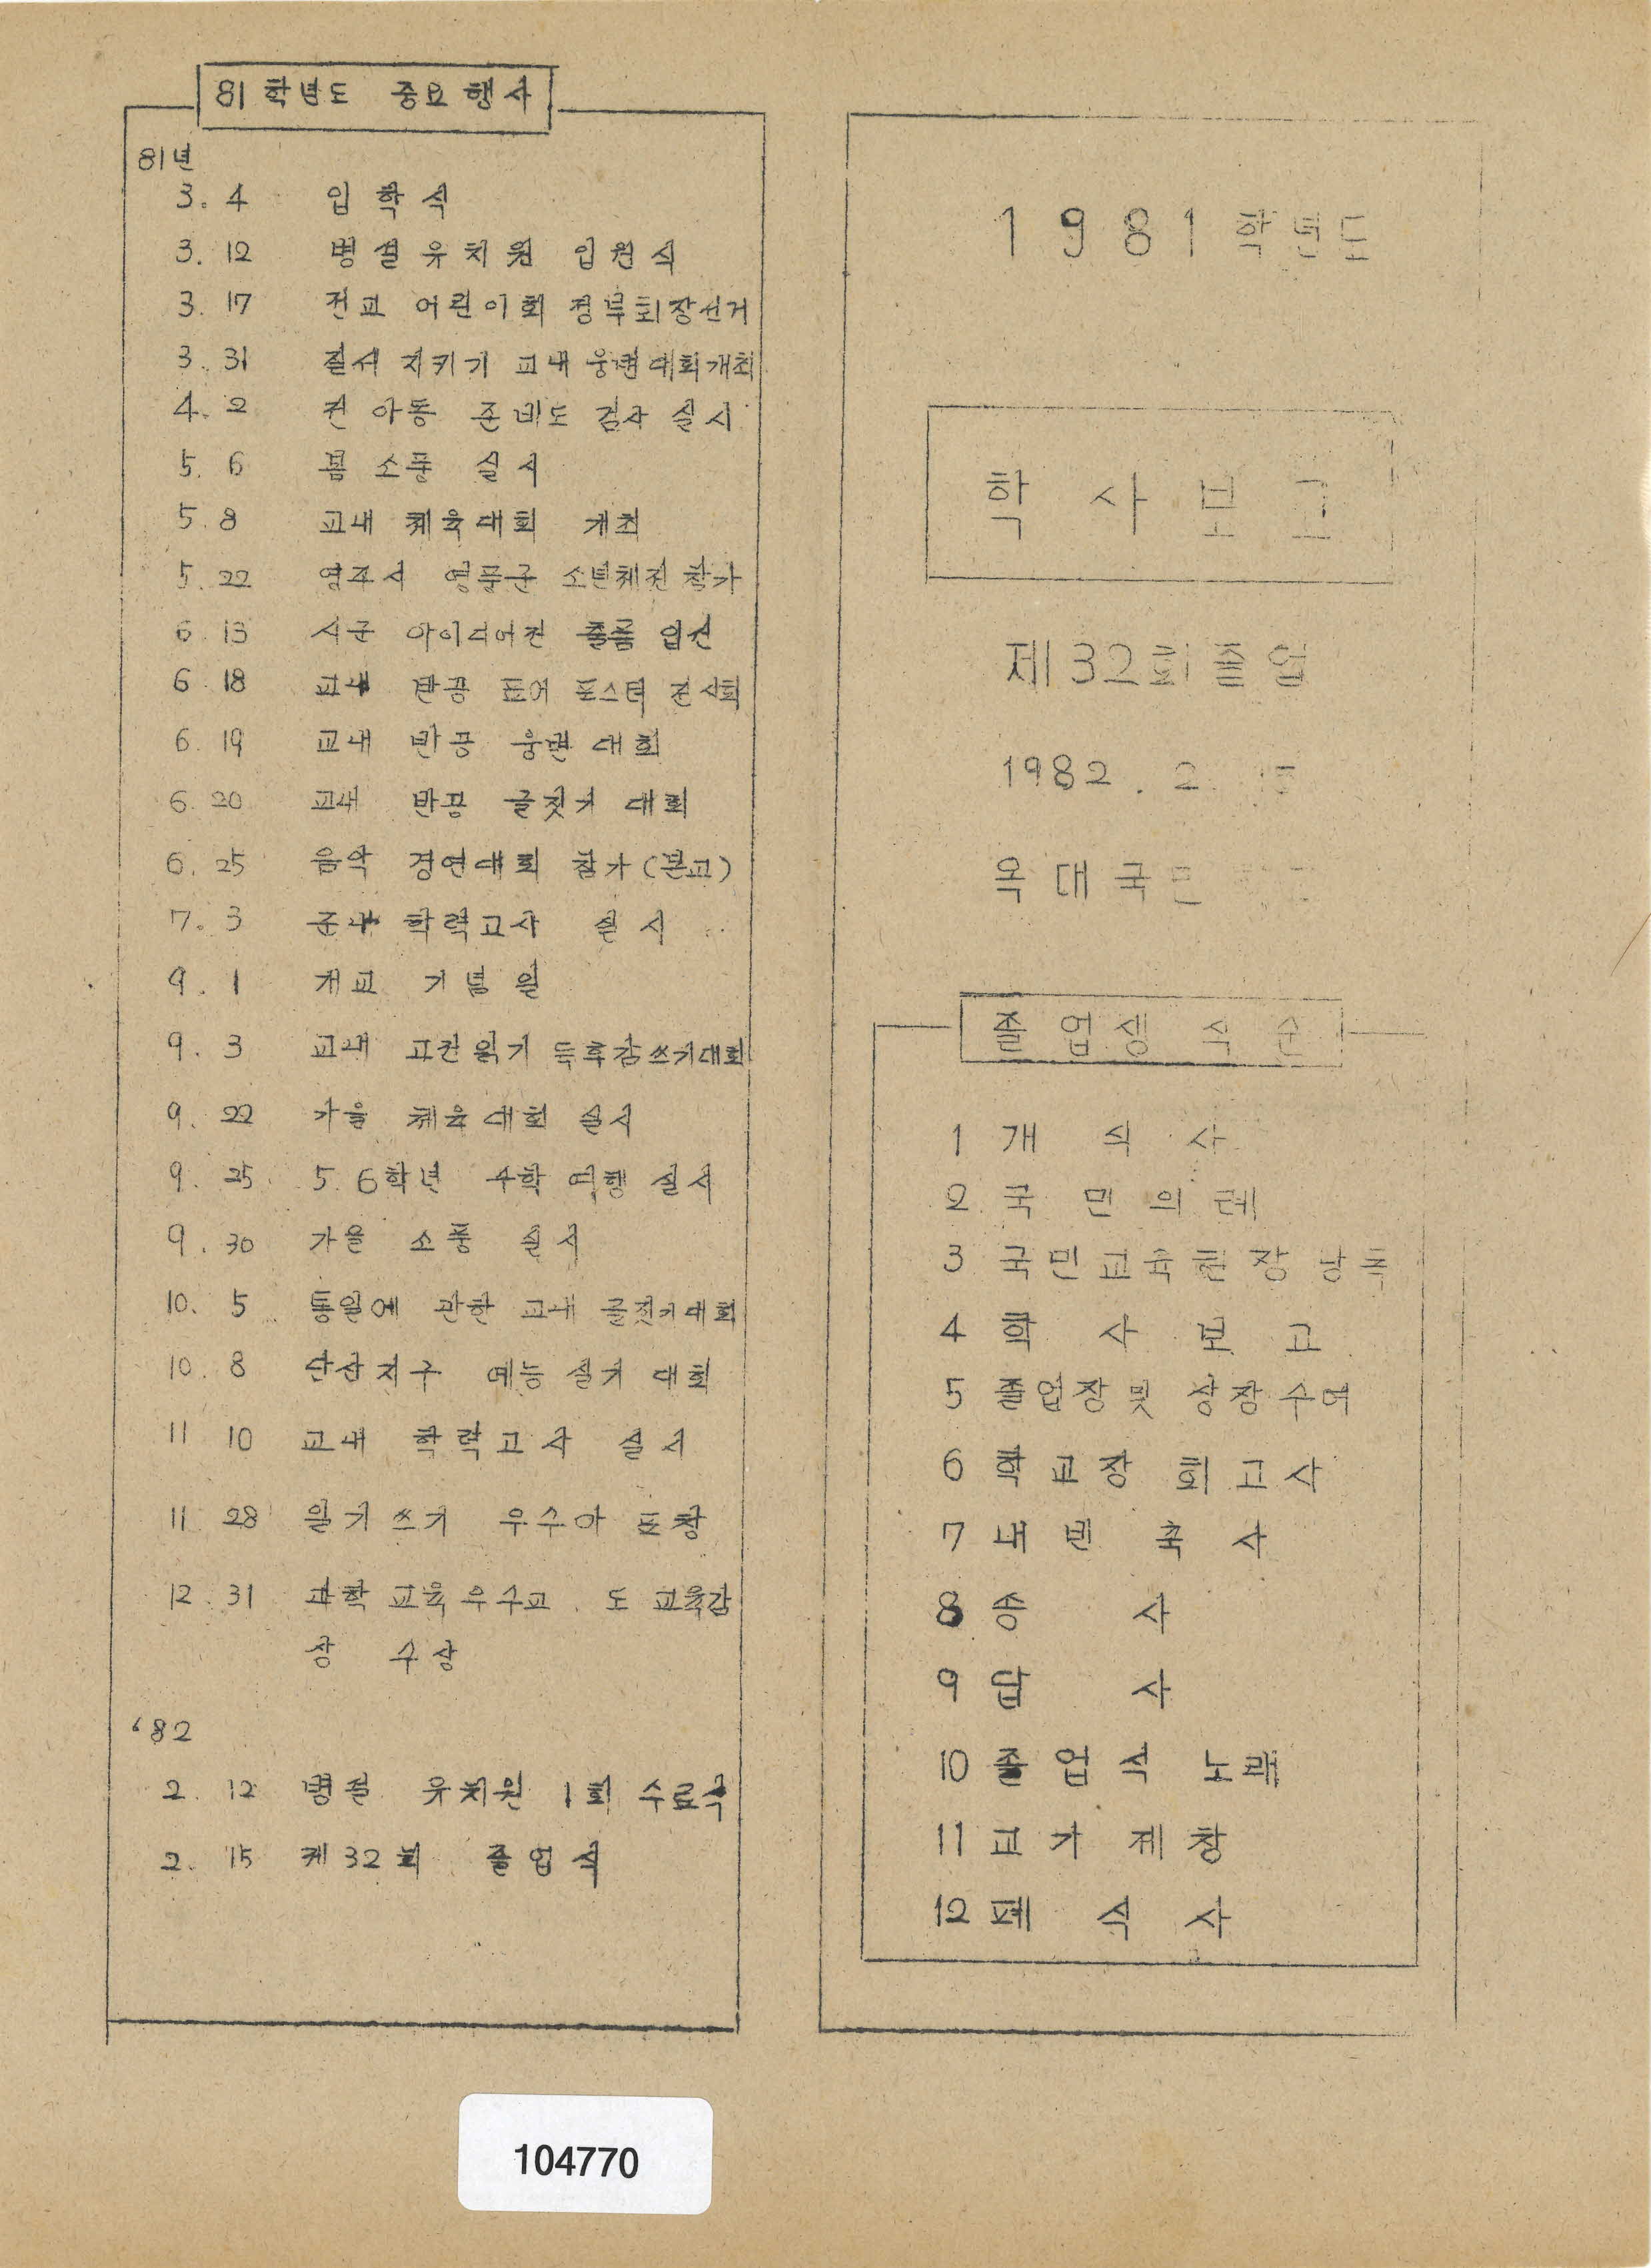 81학년도 중요행사
81년
3. 4 입학식
3. 12 병설유치원 입원식
3. 17 전교 어린이회 정부회장선거
3. 31 질서 지키기 교내 웅변대회개최
4. 2 전 아동 준비도 검사 실시
5. 6 봄 소풍 실시
5. 8 교내 체육대회 개최
5. 22 영주시 영풍군 소년체전 참가
6. 13 시군 아이디어전 출품 입선
6. 18 교내 반공 표어 포스터 전시회
6. 19 교내 반공 웅변 대회
6. 20 교내 반공 글짓기 대회
6. 25 음악 경연대회 참가(본교)
7. 3 군내 학력고사 실시
9. 1 개교 기념일
9. 3 교내 고전읽기 독후감쓰기대회
9. 22 가을 체육대회 실시
9. 25 5.6학년 수학여행 실시
9. 30 가을 소풍 실시
10. 5 통일에 관한 교내 글짓기대회
10. 8 단산지구 예능실기 대회
11 10 교내 학력고사 실시
11 28 일기쓰기 우수아 표창
12. 31 과학교육우수교. 도 교육감
상 수상
'82
2. 12 병설 유치원 1회 수료식
2. 15 제32회 졸업식
1981학년도
학사보고
제32회졸업
1982. 2. 15
옥대국민
졸업생 식순
1 개식사
2 국민의례
3 국민교육헌장 낭독
4 학사보고
5 졸업장및 상장수여
6 학교장 회고사
7 내빈 축사
8 송사
9 답사
10 졸업식 노래
11 교가 제창
12 폐식사
104770